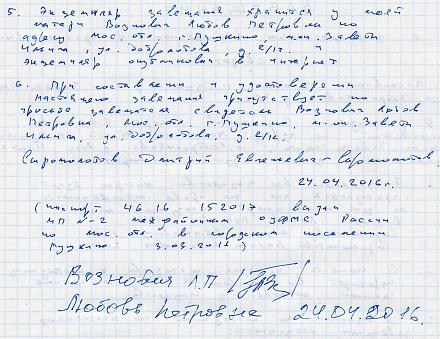 5. Экземпляр завещания хранится у моей
матери Вознович Любовь Петровны по
адресу мос. отл. г. Пушкино, м-он. Завети
Ильича, ул. Добролюбова, д. 2/12. и
экземпляр опубликован в интернет
6. При составлении и удостоверении
настоящего завещания присутствует по
просьбе завещателя свидетель Вознович Любовь
Петровна, мос. отл. г. Пушкино, м-он. Завети
Ильича, ул. Добролюбова. д. 2/12.
Сыромолотов Дмитрий Евгеньевич
24.04.2016г.
(паспорт 46 16 152017 выдан
МП №2 межрайонного ОУФМС России
по мос. отл. в городском поселении
Пушкино 3.03.2011)
Л.П
Любовь Петровна 24.04.2016.